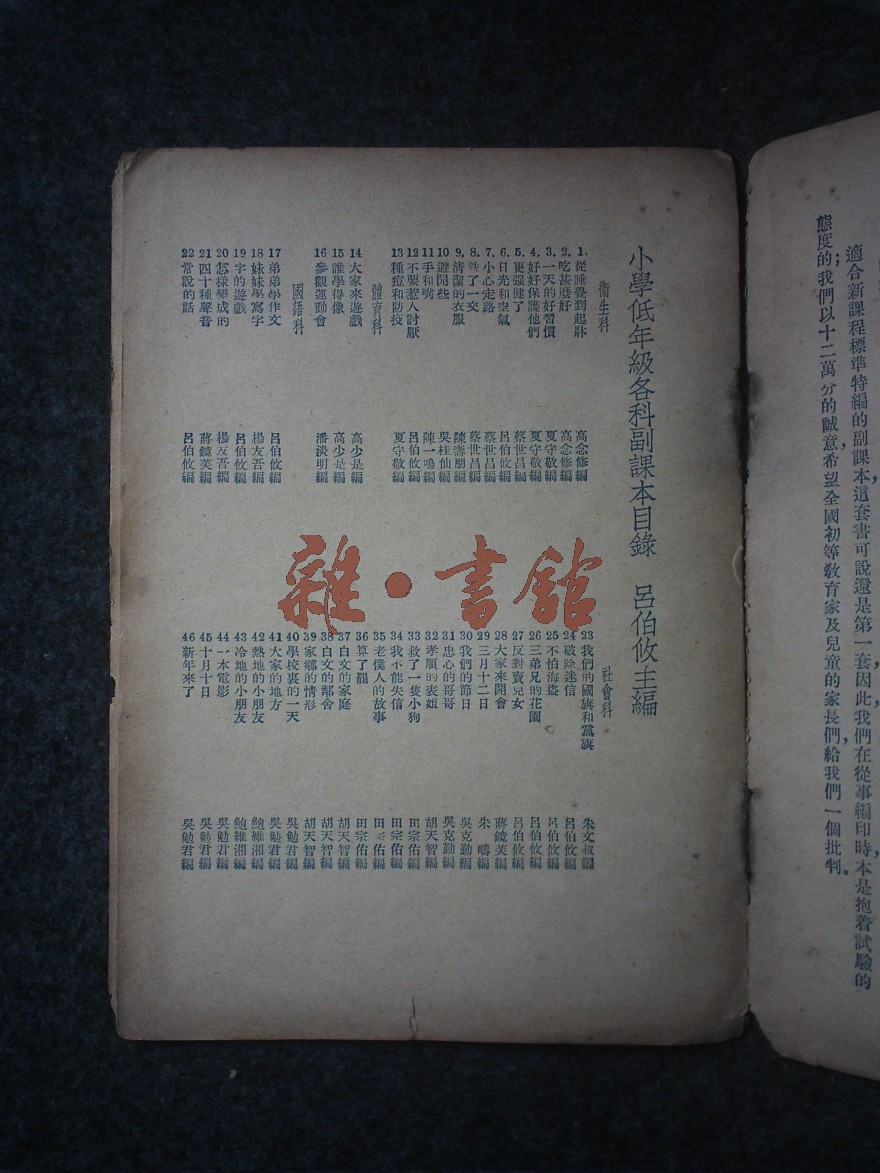 適合新課程標準特編的副課本，這套書可說還是第一套，因此，我們在從事編印時，本是抱着試驗的
態度的；我們以十二萬分的誠意，希望全國初等教育家及兒童的家長們，給我們一個批判。
小學低年級各科副課本目錄 呂伯攸主編
衞生科
1. 從睡覺到起牀 高念修編
2. 吃甚麼好 高念修編
3. 一天的好習慣 夏守敬編
4. 好好保護他們 夏守敬編
5. 更强健了 蔡世昌編
6. 日光和空氣 呂伯攸編
7. 小心走路 蔡世昌編
8. 了一交 蔡世昌編
9. 清潔的衣服 陳壽朋編
10 避開些 吳桂仙編
11 手和嘴 陳一鳴編
12 不要惹人討厭 呂伯攸編
13 種痘和防疫 夏守敬編
體育科
14 大家來遊戲 高少是編
15 誰學得像 高少是編
16 參觀運動會 潘淡明編
國語科
17 弟弟學作文 呂伯攸編
18 妹妹學寫字 楊友吾編
19 字的遊戲 呂伯攸編
20 怎樣變成的 楊友吾編
21 四十種聲音 蔣鏡芙編
22 常說的話 呂伯攸編
社會科
23 我們的國旗和黨旗 朱文叔編
24 破除迷信 呂伯攸編
25 不怕海盜 呂伯攸編
26 三弟兄的花園 呂伯攸編
27 反對賣兒女 呂伯攸編
28 大家來開會 蔣鏡芙編
29 三月十二日 朱 疇編
30 我們的節日 吳克勤編
31 忠心的哥哥 吳克勤編
32 孝順的表姐 胡天智編
33 救了一隻小狗 田宗佑編
34 我不能失信 田宗佑編
35 老僕人的故事 田宗佑編
36 算了罷 田宗佑編
37 白文的家庭 胡天智編
38 白文的鄰舍 胡天智編
39 家鄉的情形 胡天智編
40 學校裏的一天 吳勉君編
41 大家的地方 吳勉君編
42 熱地的小朋友 鮑維湘編
43 冷地的小朋友 鮑維湘編
44 一本電影 吳勉君編
45 十月十日 吳勉君編
46 新年來了 吳勉君編
雜·書館